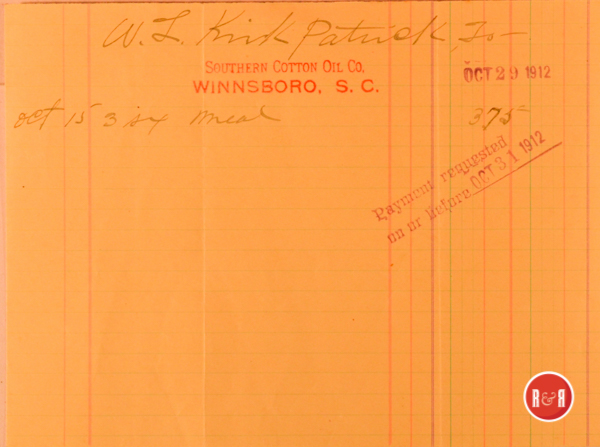 W. L. Kirk Patrick, To -
SOUTHERN COTTON OIL CO.
WINNSBORO, S. C.
OCT 29 1912
Oct 15 3 sx meal 375
Payment requested
on or before OCT 31 1912
R&R